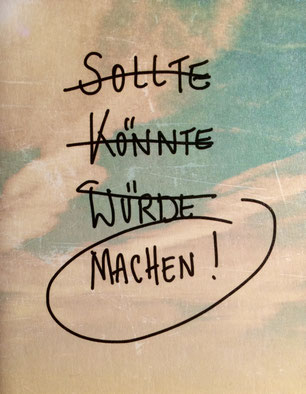 SOLLTE
KÖNNTE
WÜRDE
MACHEN!